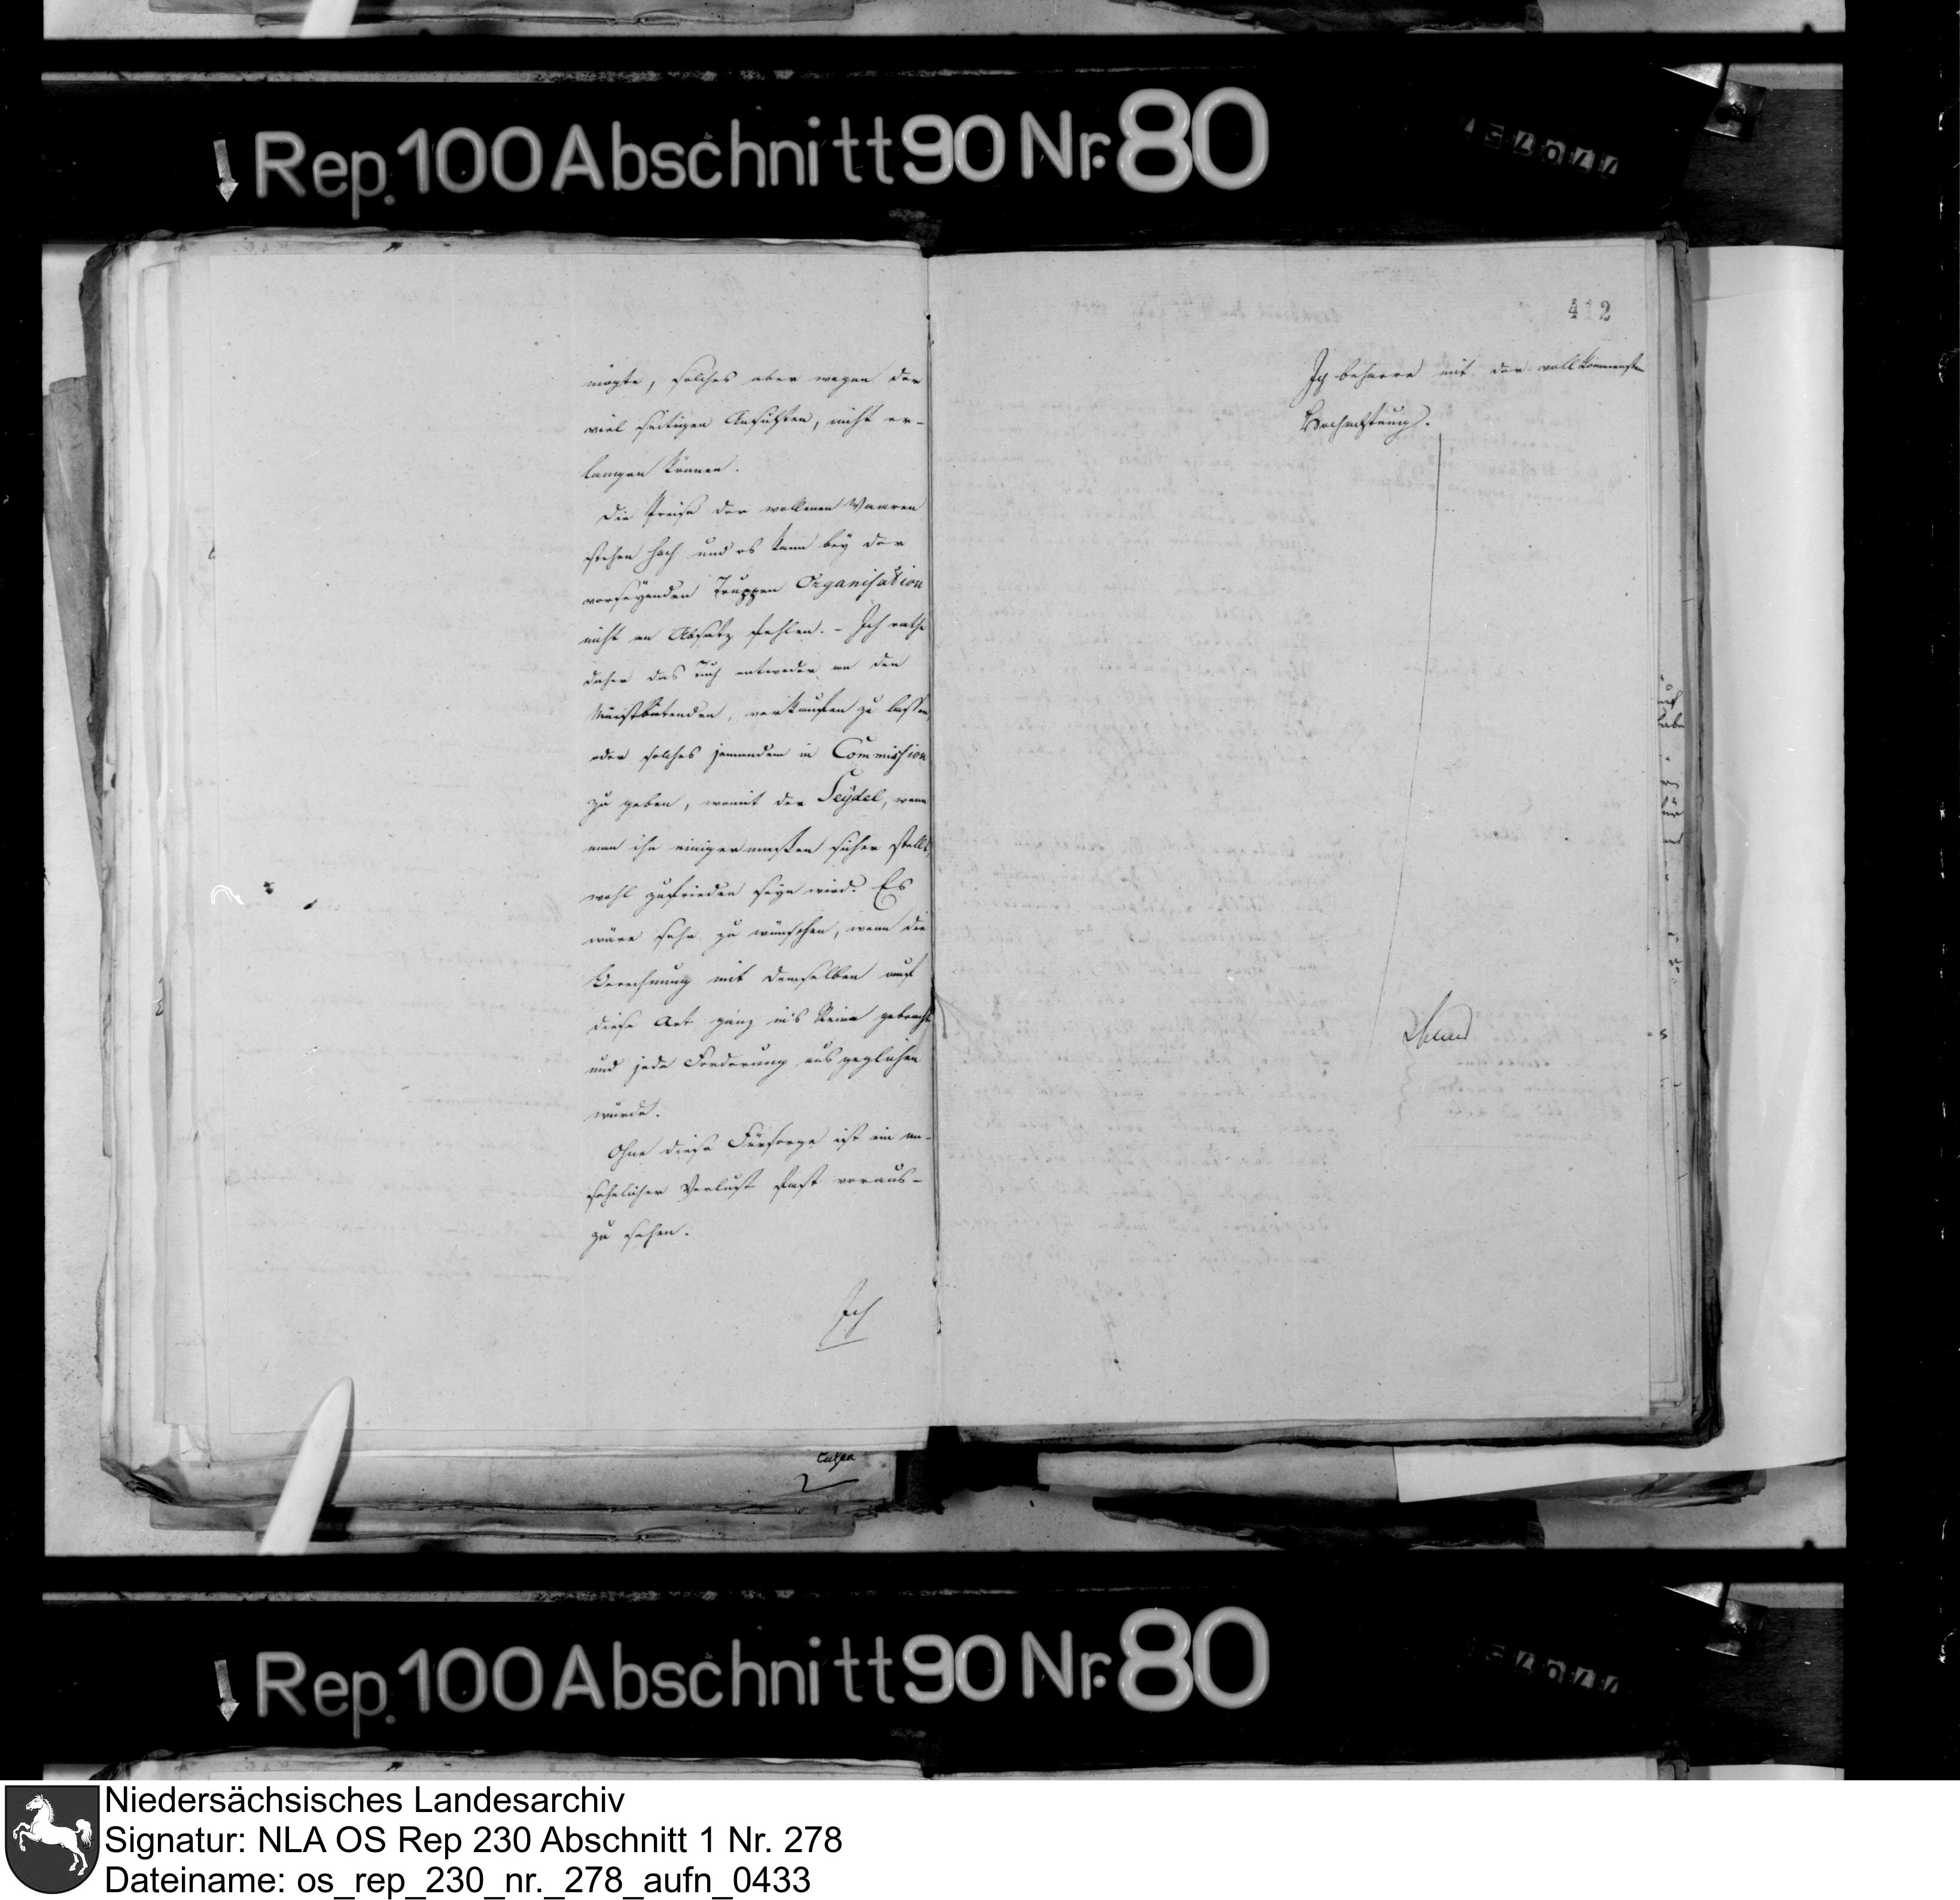 Rep. 100 Abschnitt 90 Nr. 80
mögte, solches aber wegen der
viel seitigen Ansichten, nicht er-
langen können.
Die Preise der wollenen Waaren
stehen hoch und es kann bey der
vorseyenden Truppen Organisation
nicht an Absatz fehlen. - Ich rathe
daher das Tuch entweder an den
Meistbietenden, verkaufen zu lassen,
oder solches jemandem in Commission
zu geben, womit der Seydel, wenn
man ihn einigermaßen sicher stellt,
wohl zufrieden seyn wird. Es
wäre sehr zu wünschen, wenn die
Berechnung mit demselben auf
diese Art ganz ins Reine gebracht
und jede Forderung ausgeglichen
würde.
Ohne diese Fürsorge ist ein an-
sehnlicher Verlust fast voraus-
zu sehen.
Ich
412
Ich beharre mit der vollkommensten
Hochachtung.
culpa
Rep. 100 Abschnitt 90 Nr. 80
Niedersächsisches Landesarchiv
Signatur: NLA OS Rep 230 Abschnitt 1 Nr. 278
Dateiname: os_rep_230_nr._278_aufn_0433